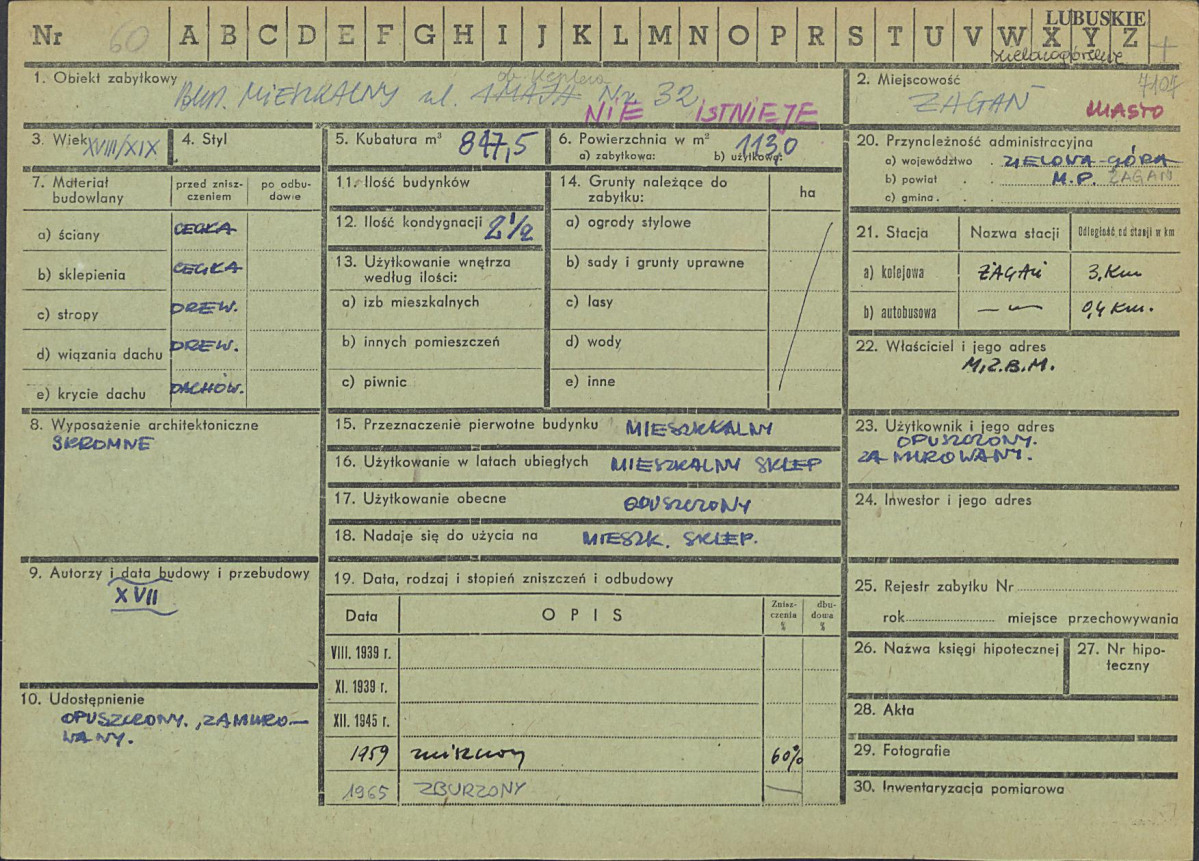 Nr 60 A B C D E F G H I J K L M N O P R S T U V W X Y Z
LUBUSKIE
zielonogórskie
1. Obiekt zabytkowy
ob. Keplera
BUD. MIESZKALNY ul. 1 MAJA Nr 32
NIE ISTNIEJE
2. Miejscowość
7104
ŻAGAŃ
MIASTO
3. Wiek XVIII/XIX
4. Styl
5. Kubatura m³ 847,5
6. Powierzchnia w m² 113,0
a) zabytkowa: b) użytkowa:
7. Materiał budowlany
przed znisz-
czeniem
po odbu-
dowie
a) ściany CEGŁA
b) sklepienia CEGŁA
c) stropy DREW.
d) wiązania dachu DREW.
e) krycie dachu DACHÓW.
8. Wyposażenie architektoniczne
SKROMNE
9. Autorzy i data budowy i przebudowy
XVII
10. Udostępnienie
OPUSZCZONY, ZAMURO-
WANY.
11. Ilość budynków
12. Ilość kondygnacji 2 1/2
13. Użytkowanie wnętrza
według ilości:
a) izb mieszkalnych
b) innych pomieszczeń
c) piwnic
14. Grunty należące do
zabytku:
ha
a) ogrody stylowe
b) sady i grunty uprawne
c) lasy
d) wody
e) inne
15. Przeznaczenie pierwotne budynku MIESZKALNY
16. Użytkowanie w latach ubiegłych MIESZKALNY SKLEP
17. Użytkowanie obecne OPUSZCZONY
18. Nadaje się do użycia na MIESZK. SKLEP.
19. Data, rodzaj i stopień zniszczeń i odbudowy
Data
OPIS
Znisz-
czenia
%
dbu-
dowa
%
VIII. 1939 r.
XI. 1939 r.
XII. 1945 r.
1959 60%
1965 ZBURZONY
20. Przynależność administracyjna
a) województwo ZIELONA-GÓRA
b) powiat M.P. ŻAGAŃ
c) gmina
21. Stacja Nazwa stacji Odległość od stacji w km
a) kolejowa ŻAGAŃ 3, Km
b) autobusowa — „ — 0,4 Km.
22. Właściciel i jego adres
M.Z.B.M.
23. Użytkownik i jego adres
OPUSZCZONY.
ZAMUROWANY.
24. Inwestor i jego adres
25. Rejestr zabytku Nr
rok miejsce przechowywania
26. Nazwa księgi hipotecznej
27. Nr hipo-
teczny
28. Akta
29. Fotografie
30. Inwentaryzacja pomiarowa